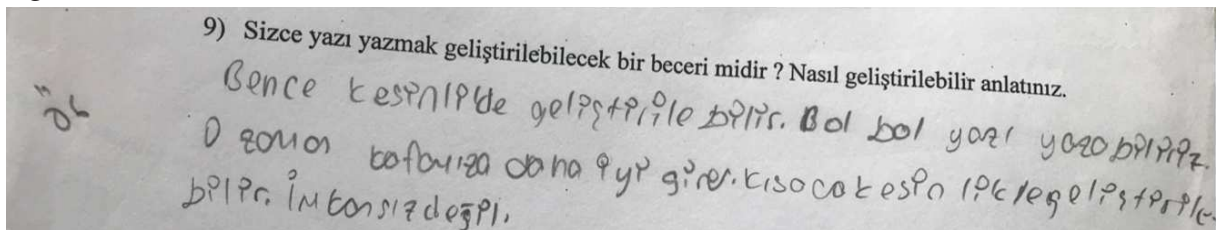 9) Sizce yazı yazmak geliştirilebilecek bir beceri midir ? Nasıl geliştirilebilir anlatınız.
Bence kesinlikle geliştirile bilir. Bol bol yazı yazabiliriz.
O zaman kafamıza daha iyi girer. Kısaca kesin likle geliştirile-
bilir. İmkansız değil.